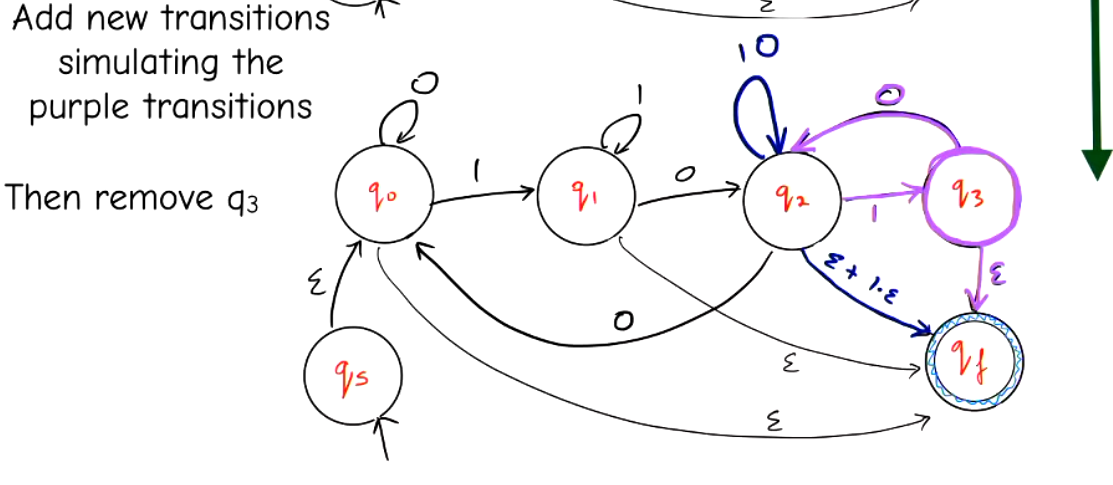 Add new transitions
simulating the
purple transitions
Then remove q3
ε
0
1
10
0
q0
1
q1
0
q2
1
q3
ε
ε + 1·ε
ε
0
qs
ε
qf
ε